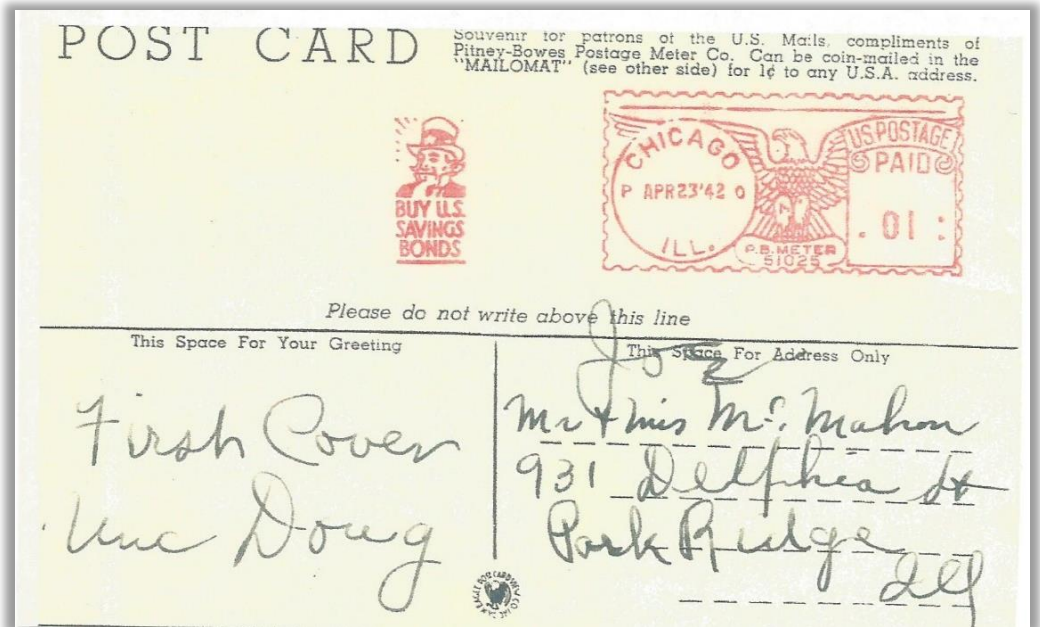 POST CARD
Souvenir for patrons of the U.S. Mails, compliments of
Pitney-Bowes Postage Meter Co. Can be coin-mailed in the
"MAILOMAT" (see other side) for 1¢ to any U.S.A. address.
BUY U.S.
SAVINGS
BONDS
CHICAGO
P APR 23 '42 O
ILL.
P.B. METER
51025
US POSTAGE
PAID
. 01 :
Please do not write above this line
This Space For Your Greeting
First Cover
Unc Doug
This Space For Address Only
Joe
Mr & Mrs Mc Mahon
931 Delphia St
Park Ridge
Ill